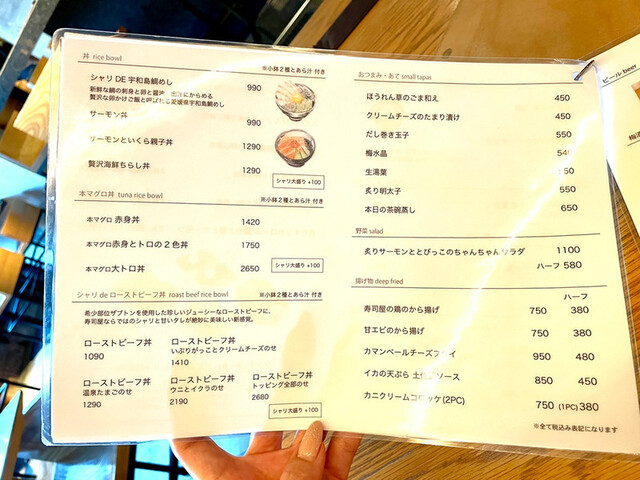 丼 rice bowl
※小鉢2種とあら汁 付き
シャリ DE 宇和島鯛めし 990
新鮮な鯛の刺身と卵と醤油、出汁にからめる
贅沢な卵かけご飯と呼ばれる愛媛県宇和島鯛めし
サーモン丼 990
サーモンといくら親子丼 1290
贅沢海鮮ちらし丼 1290
シャリ大盛り +100
本マグロ丼 tuna rice bowl ※小鉢2種とあら汁 付き
本マグロ 赤身丼 1420
本マグロ 赤身とトロの2色丼 1750
本マグロ 大トロ丼 2650
シャリ大盛り +100
シャリ de ローストビーフ丼 roast beef rice bowl ※小鉢2種とあら汁 付き
希少部位ザブトンを使用した珍しいジューシーなローストビーフに、
寿司屋ならではのシャリと甘いタレが絶妙に美味しい新感覚。
ローストビーフ丼
1090
ローストビーフ丼
いぶりがっことクリームチーズのせ
1410
ローストビーフ丼
温泉たまごのせ
1290
ローストビーフ丼
ウニとイクラのせ
2190
ローストビーフ丼
トッピング全部のせ
2680
シャリ大盛り +100
おつまみ・あて small tapas
ほうれん草のごま和え 450
クリームチーズのたまり漬け 450
だし巻き玉子 550
梅水晶
生湯葉
炙り明太子 550
本日の茶碗蒸し 650
野菜 salad
炙りサーモンととびっこのちゃんちゃんサラダ 1100
ハーフ 580
揚げ物 deep fried
ハーフ
寿司屋の鶏のから揚げ 750 380
甘エビのから揚げ 750 380
カマンベールチーズフライ 950 480
イカの天ぷら ソース 850 450
カニクリームコロッケ (2PC) 750 (1PC) 380
※全て税込み表記になります
ビール beer